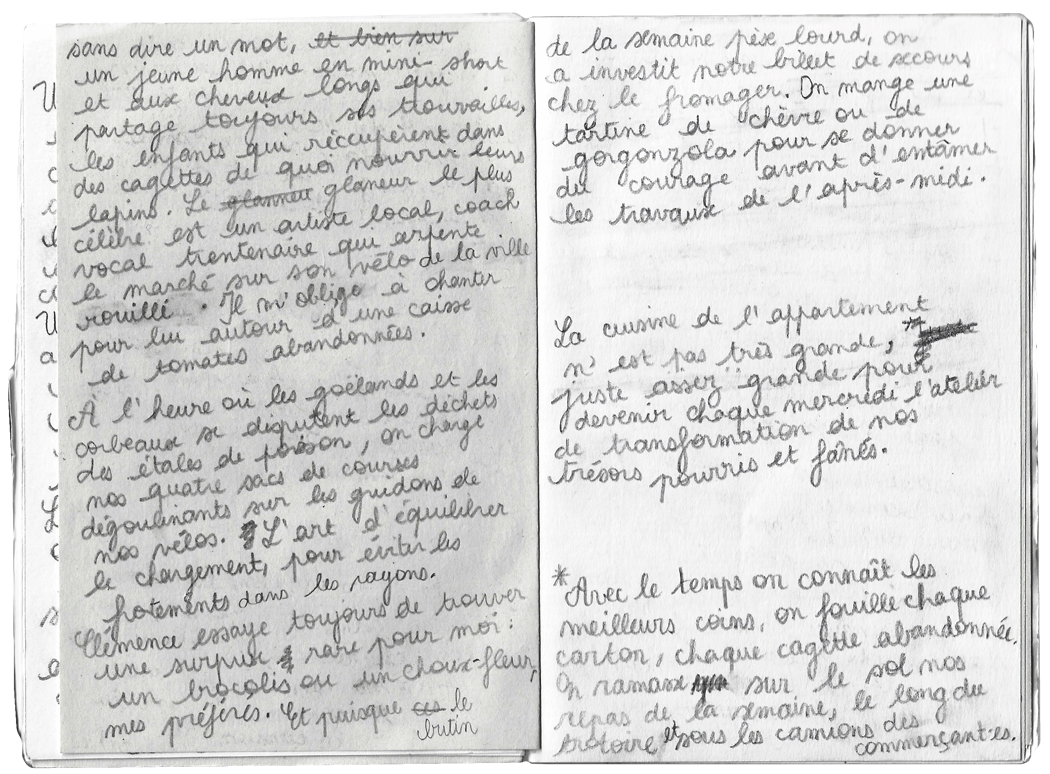 sans dire un mot, et bien sur
un jeune homme en mini-short
et aux cheveux longs qui
partage toujours ses trouvailles,
les enfants qui réccupèrent dans
des cagettes de quoi nourrir leurs
lapins. Le glanneu glaneur le plus
célèbre est un artiste local, coach
vocal trentenaire qui arpente
le marché sur son vélo de la ville
rouillé. Il m'oblige à chanter
pour lui autour d'une caisse
de tomates abandonnées.
À l'heure où les goëlands et les
corbeaux se disputent les déchets
des étales de poisson, on charge
nos quatre sacs de courses
dégoulinants sur les guidons de
nos vélos. L'art d'équilibrer
le chargement, pour éviter les
frotements dans les rayons.
Clémence essaye toujours de trouver
une surprise rare pour moi :
un brocolis ou un choux-fleur,
mes préférés. Et puisque ces le
butin
de la semaine pèse lourd, on
a investit notre billet de secours
chez le fromager. On mange une
tartine de chèvre ou de
gorgonzola pour se donner
du courage avant d'entâmer
les travaux de l'après-midi.
La cuisine de l'appartement
n'est pas très grande, *
juste assez grande pour
devenir chaque mercredi l'atelier
de transformation de nos
trésors pourris et fânés.
*Avec le temps on connaît les
meilleurs coins, on fouille chaque
carton, chaque cagette abandonnée.
On ramasse sur le sol nos
repas de la semaine, le long du
trotoire et sous les camions des
commerçant·es.